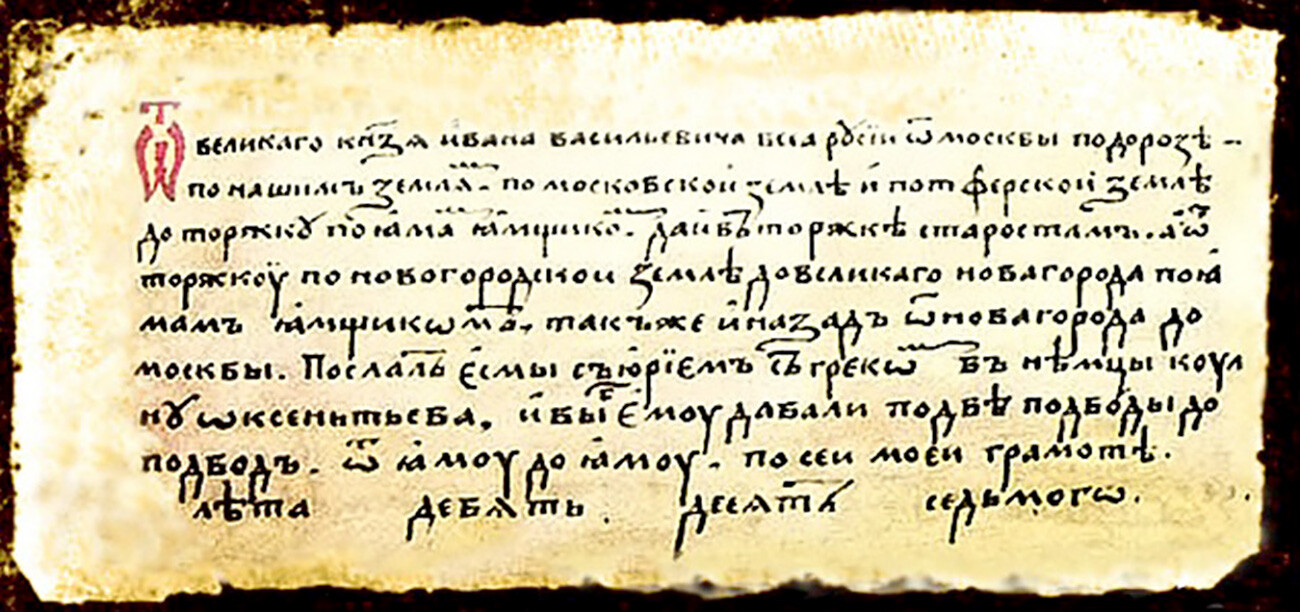 Ѿ великаго кн҃зя ивана василіевича всеа рꙋсїи ѿ москвы по дорозѣ
по нашимъ землѧ по московской землѣ и по тферской землѣ
до торжкꙋ по ꙗма ꙗмщико дай въ торжкѣ старостамъ. а ѿ
торжкоу по новогородской землѣ до великаго новагорода по ꙗ
мамъ ꙗмщикѡмъ, такъже и назадъ ѿ новагорода до
москвы. Послалъ есмы съ юрїемъ съ грекѡ въ нѣмцы
нꙋ ѡксентьева, и вы емоу давали подвѣ подводы до
подводъ. ѿ ꙗмоу до ꙗмоу. по сеи моеи грамотѣ.
лѣта девѧть. десят седьмогѡ.